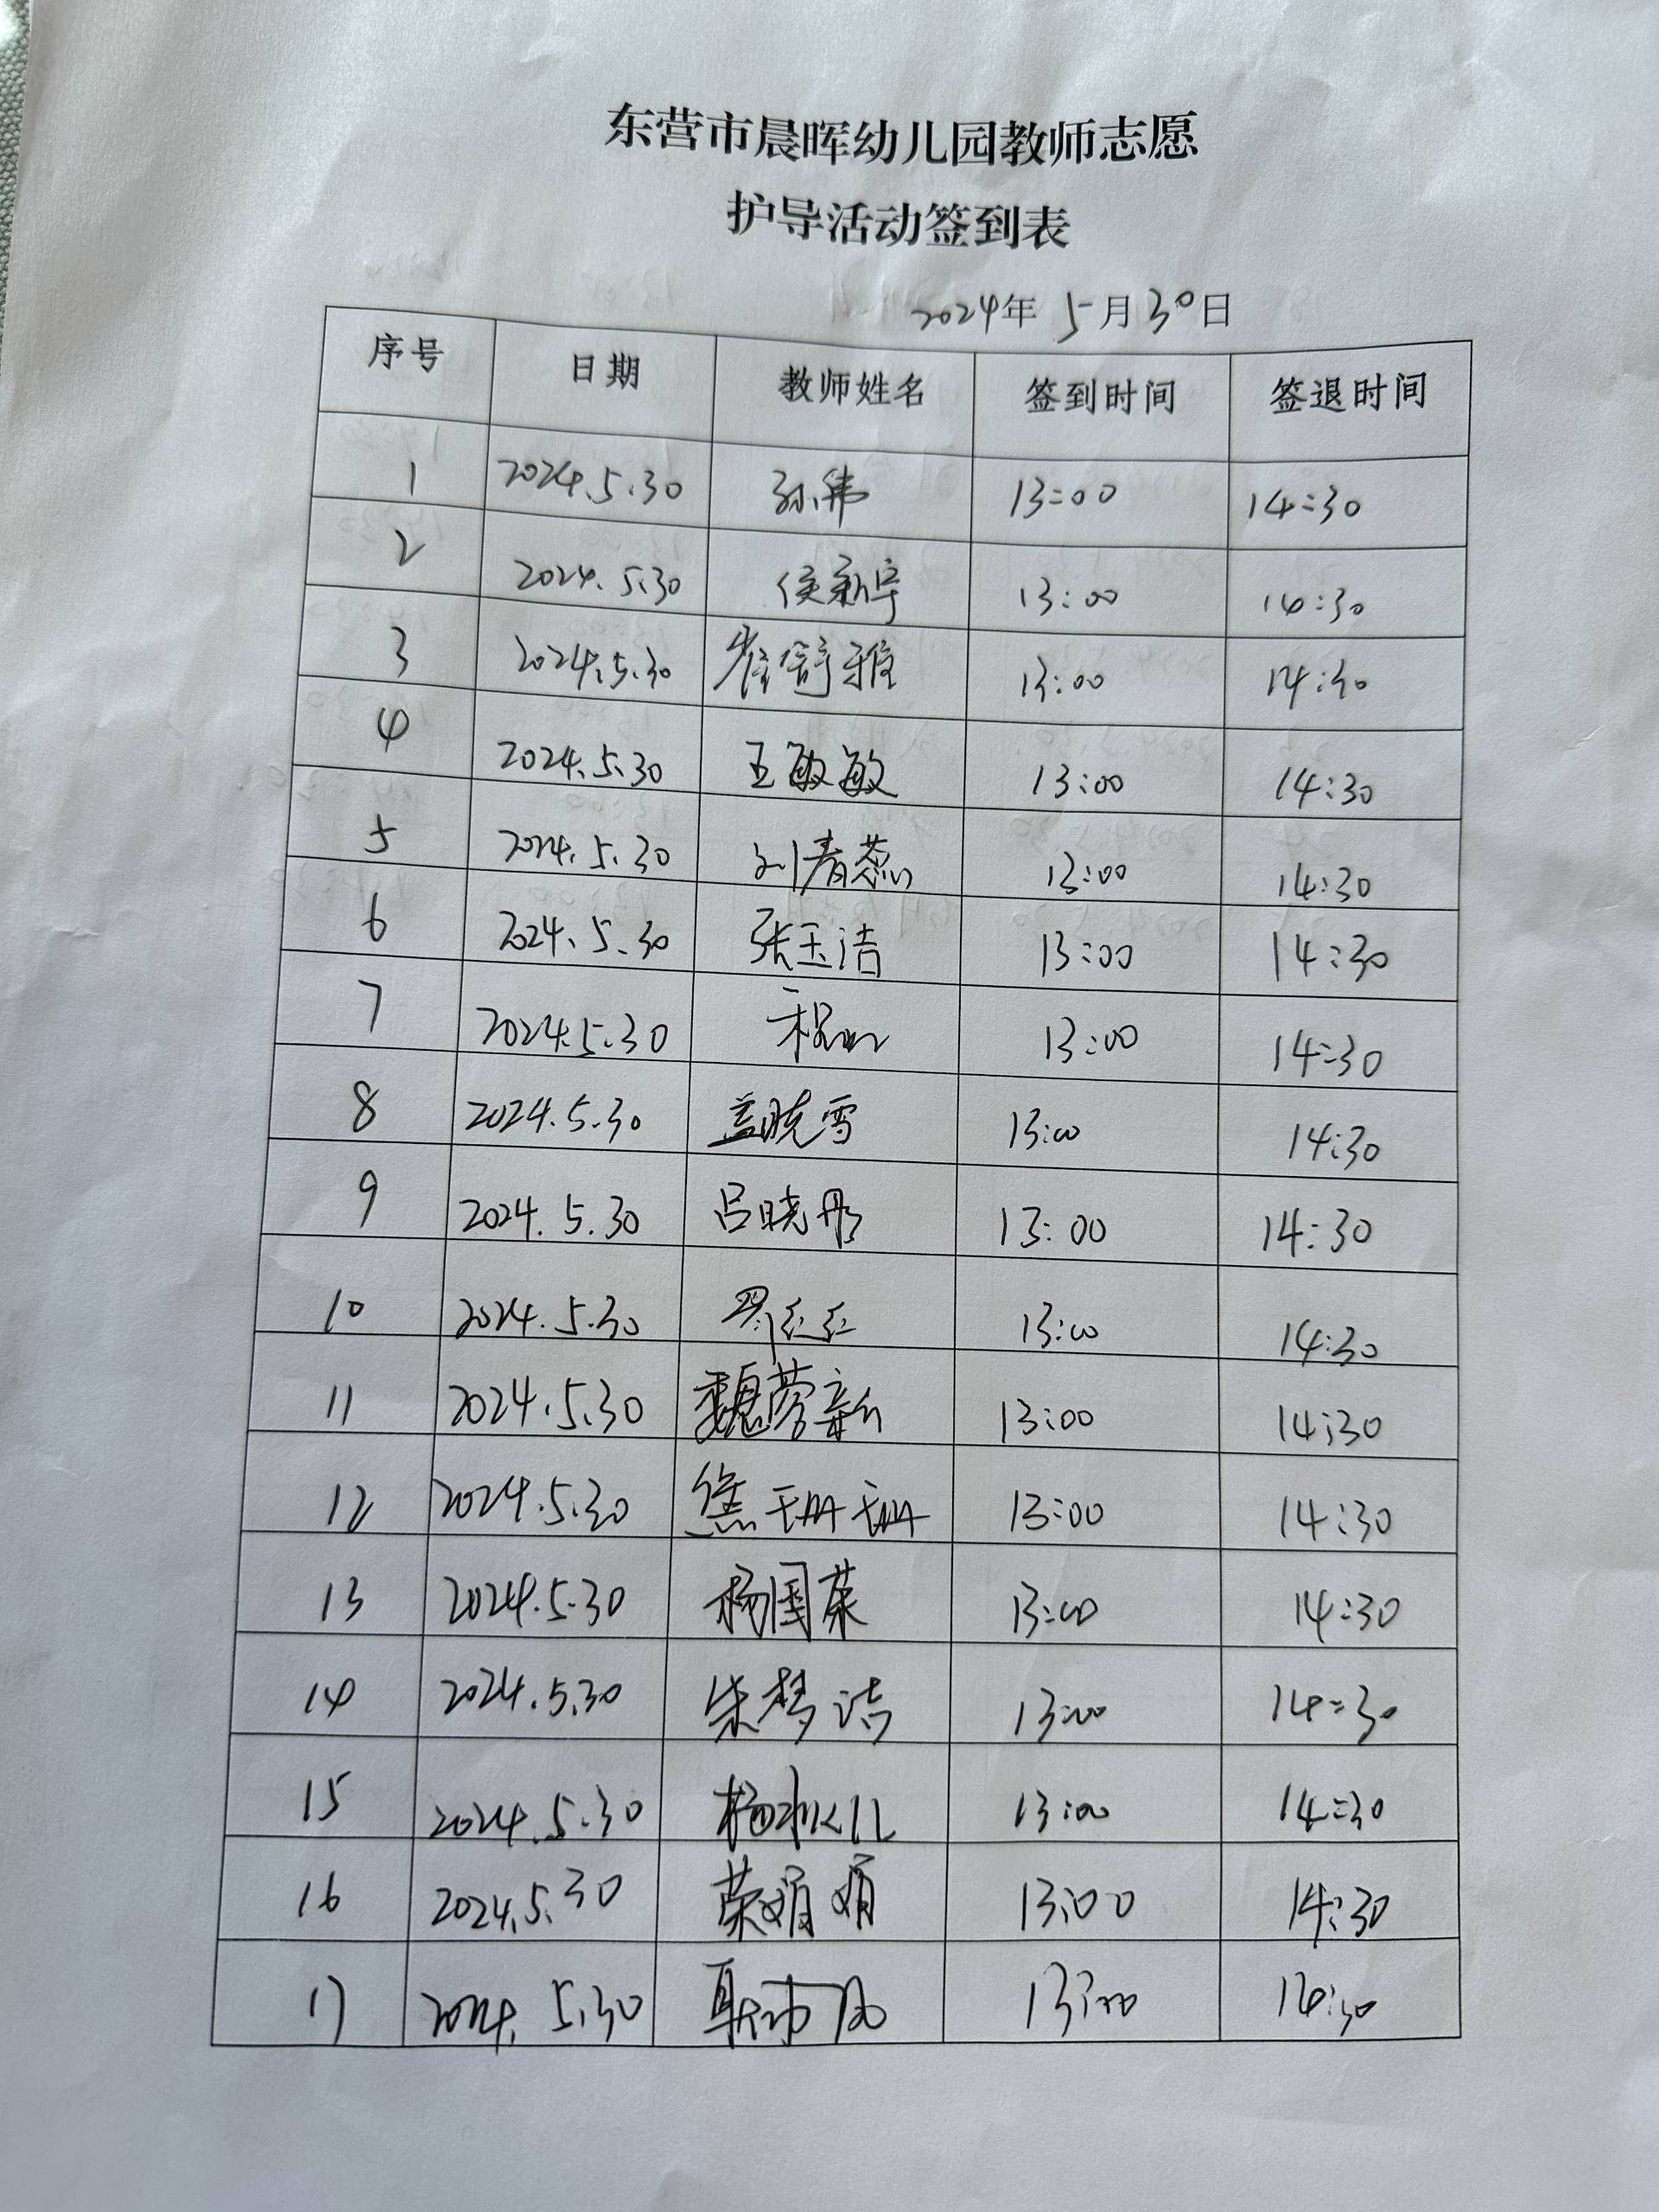 东营市晨晖幼儿园教师志愿
护导活动签到表
2024年 5月30日
序号 日期 教师姓名 签到时间 签退时间
1 2024.5.30 孙伟 13:00 14:30
2 2024.5.30 侯新宇 13:00 14:30
3 2024.5.30 崔舒雅 13:00 14:30
4 2024.5.30 王敏敏 13:00 14:30
5 2024.5.30 刘青蕊 13:00 14:30
6 2024.5.30 张玉洁 13:00 14:30
7 2024.5.30 13:00 14:30
8 2024.5.30 盖晓雪 13:00 14:30
9 2024.5.30 吕晓彤 13:00 14:30
10 2024.5.30 13:00 14:30
11 2024.5.30 13:00 14:30
12 2024.5.30 焦珊珊 13:00 14:30
13 2024.5.30 杨国荣 13:00 14:30
14 2024.5.30 朱梦洁 13:00 14:30
15 2024.5.30 13:00 14:30
16 2024.5.30 荣娟娟 13:00 14:30
17 2024.5.30 13:00 14:30